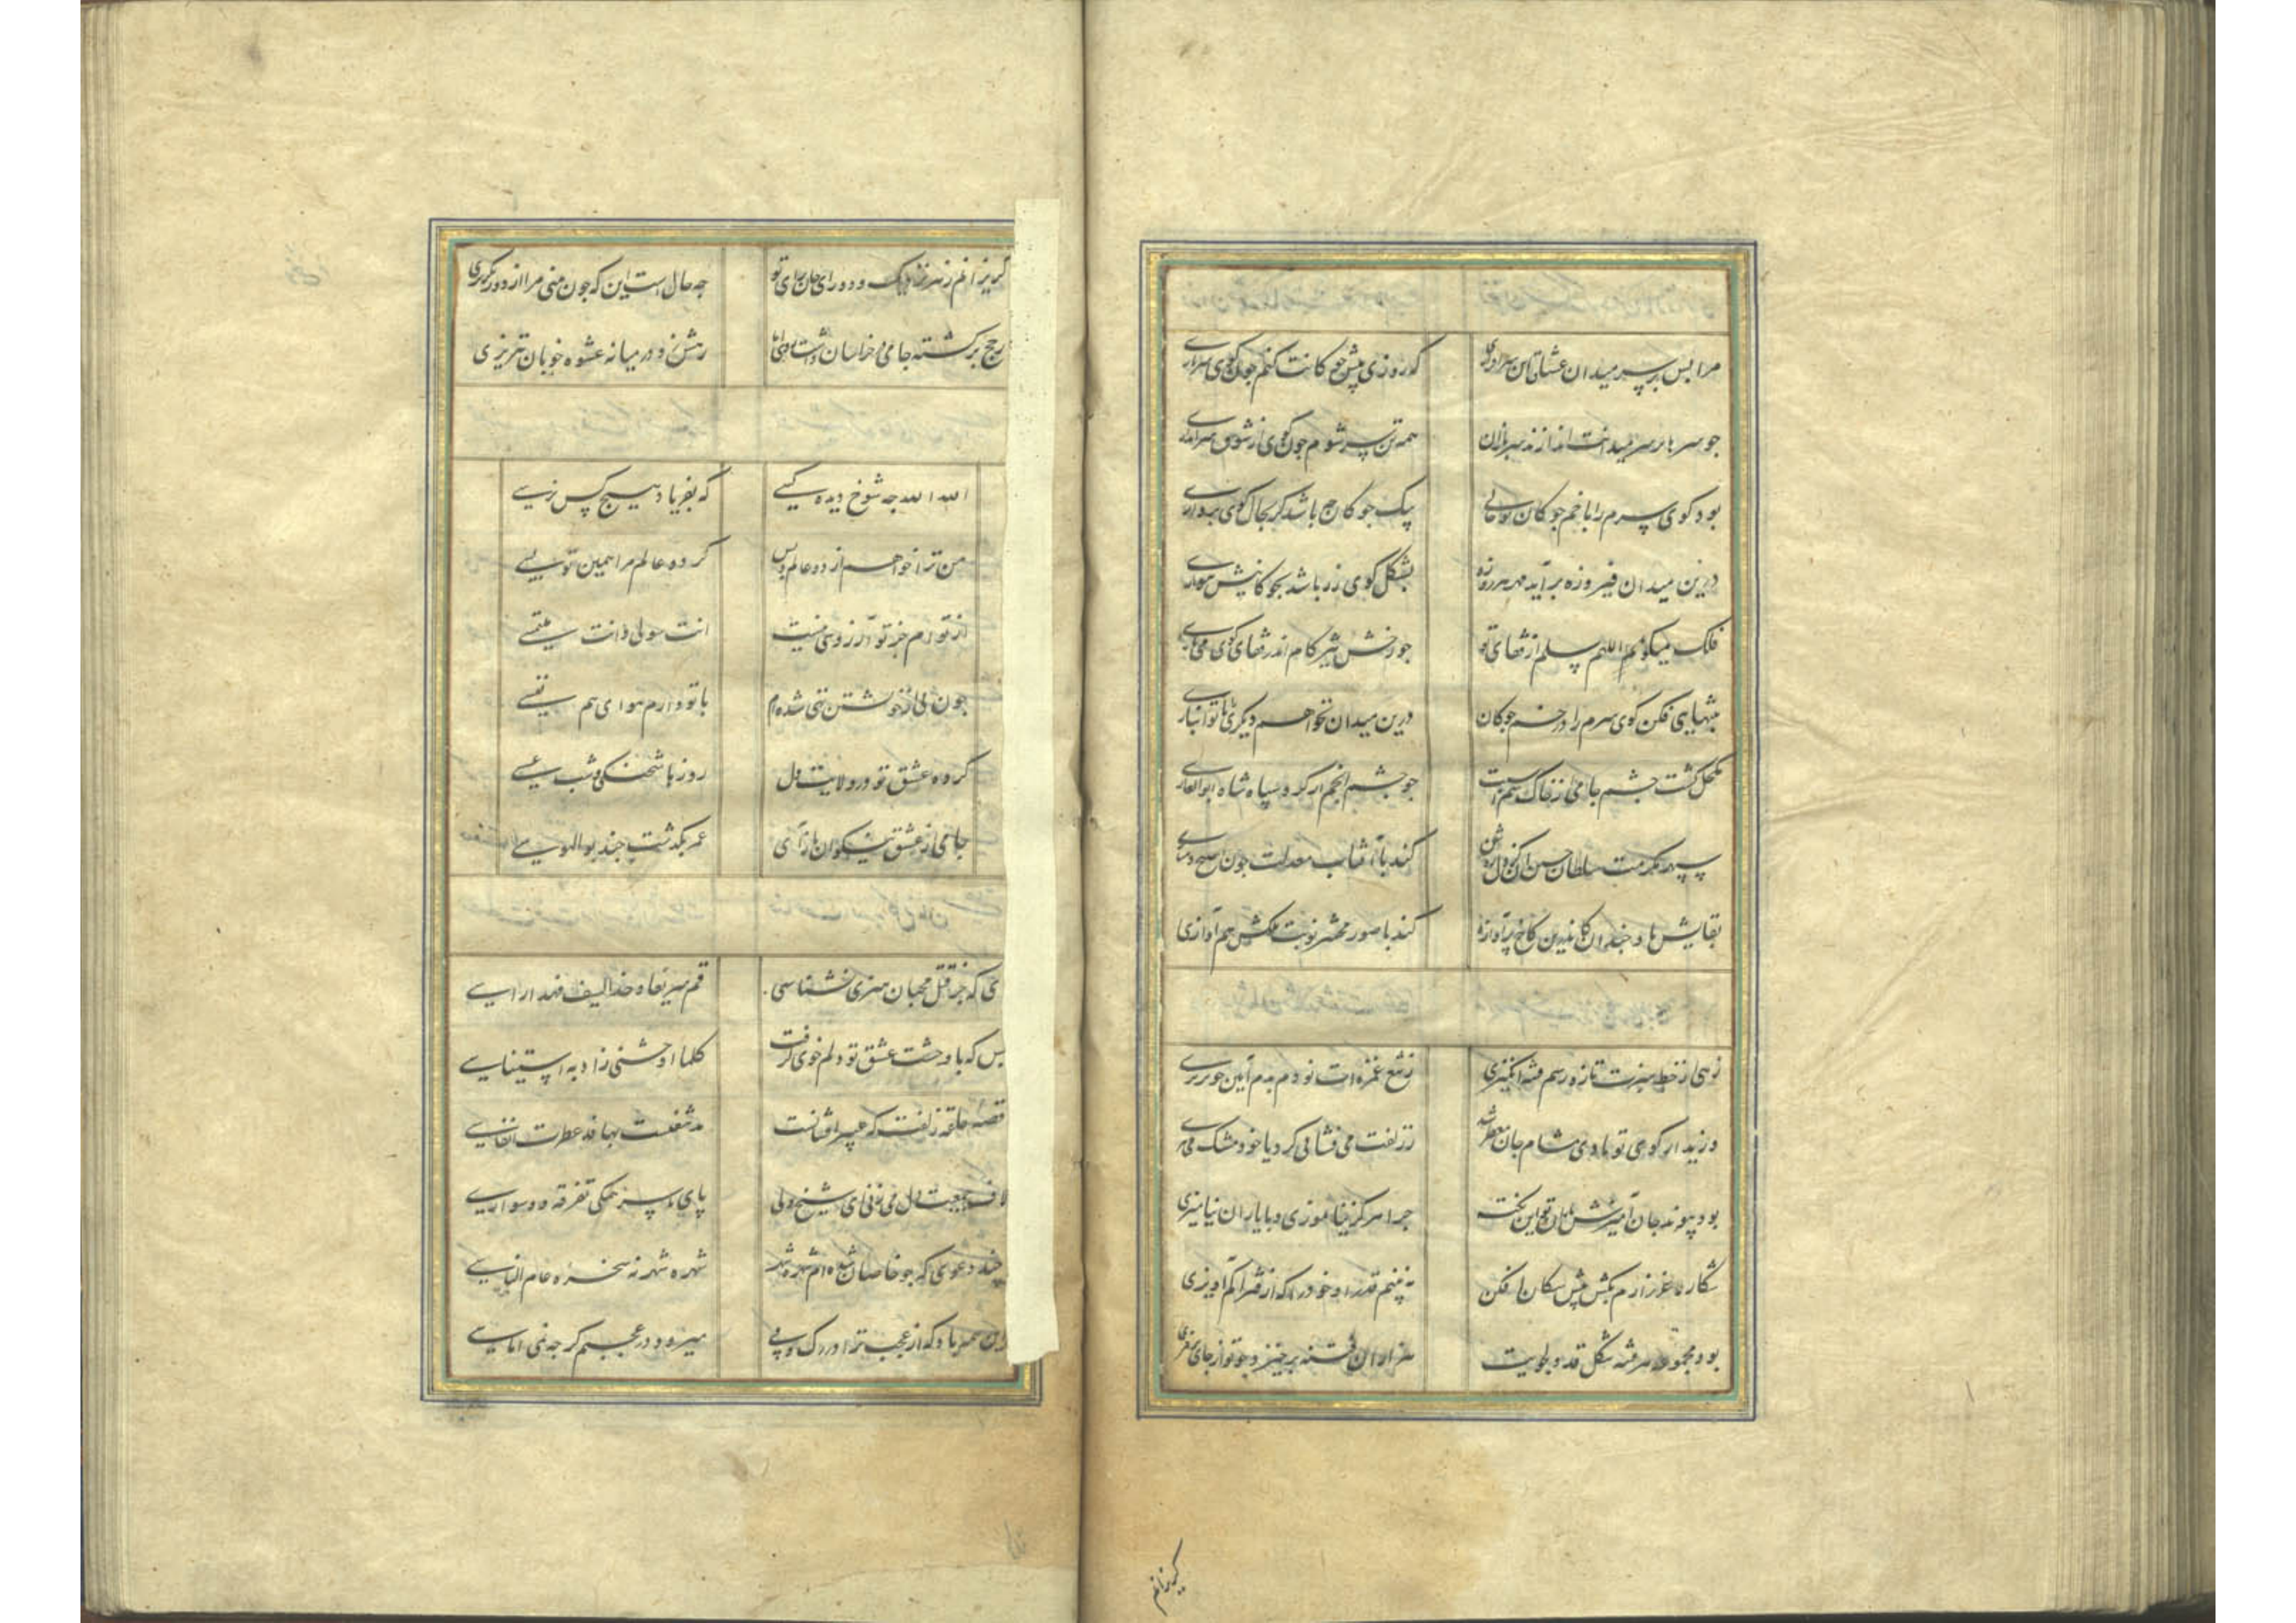 مرا بس بر سر میدان عشاق این سرافرازی که روزی پیش چوکانت کنم چون کوی سربازی
جو سرها بر سر میدانت اندازند سربازان همه تن سر شوم چون کوی از شوق سراندازی
بود کوی سرم را با خم چوکان تو حالی
درین میدان فیروزه برآید مهر هر روزه بشکل کوی زر باشد بچوکانیش بنوازی
فلک میکوید اللهم سلم از قفای تو جو رخش تیز کام اندر قفای کوی می تازی
بتنهایی فکن کوی سرم را در خم چوکان درین میدان نخواهم دیکری را با تو انبازی
مکحل کشت چشم جامی از خاک سم اسبت جو چشم انجم از کرد سپاه شاه ابوالغازی
سپهر مکرمت سلطان حسین آن کز دل روشن کند با آفتاب معدلت چون صبح دمسازی
بقایش باد چندان کاندرین کاخ پرآوازه کند با صور محشر نوبت ملکش هم آوازی
زهی از خط سبزت تازه رسم فتنه انکیزی ز تیغ غمزه ات نو دم بدم آیین خونریزی
وزید از کوی تو بادی مشام جان معطر شد ز زلفت می فشانی کرد یا خود مشک می بیزی
بود پیوند جان آمیزش یاران چرا هرکز نیاموزی و با یاران نیامیزی
شکار لاغرزارم بکش پیش سکان افکن نه بینم قدر او خود را که از فتراکم آویزی
بود مجموعه هر فتنه شکل قد دلجویت هزاران فتنه برخیزد جو تو از جای برخیزی
کریزانم
کریزانم ز تبریز جه حال است این که چون منی مرا از دور بکریزی
ز حج برکشته جامی در خراسان داشت رهش زد در میانه عشوه خوبان تبریزی
الله الله جه شوخ دیده کسی که بفریاد هیچ کس نرسی
من ترا خواهم از دو عالم و بس کرده عالم مرا همین تو بسی
از تو ام جز تو آرزویی نیست انت سولی و انت ملتمسی
چون نی از خویشتن تهی شده ام با تو دارم هوای هم نفسی
کرده عشق تو در ولایت دل روزها شحنکی و شب عسسی
جامی از عشق نیکوان بازآی عمر بکذشت چند بوالهوسی
ای که جز قتل محبان هنری نشناسی
بس که با وحشت عشق تو دلم خوی کرفت کلما اوحشنی زاد به استیناسی
قصه حلقه زلفت که عبیر افشانست مذ شغفت بها قد عطرت انفاسی
لاف جمعیت دل می زنی ای شیخ ولی پای تا سر همکی تفرقه و وسواسی
چند دعوی که جو خاصان شده ام شهره شهر شهره شهر نه سخره عام الناسی
میرود در عجبم کر چه نمی اماسی